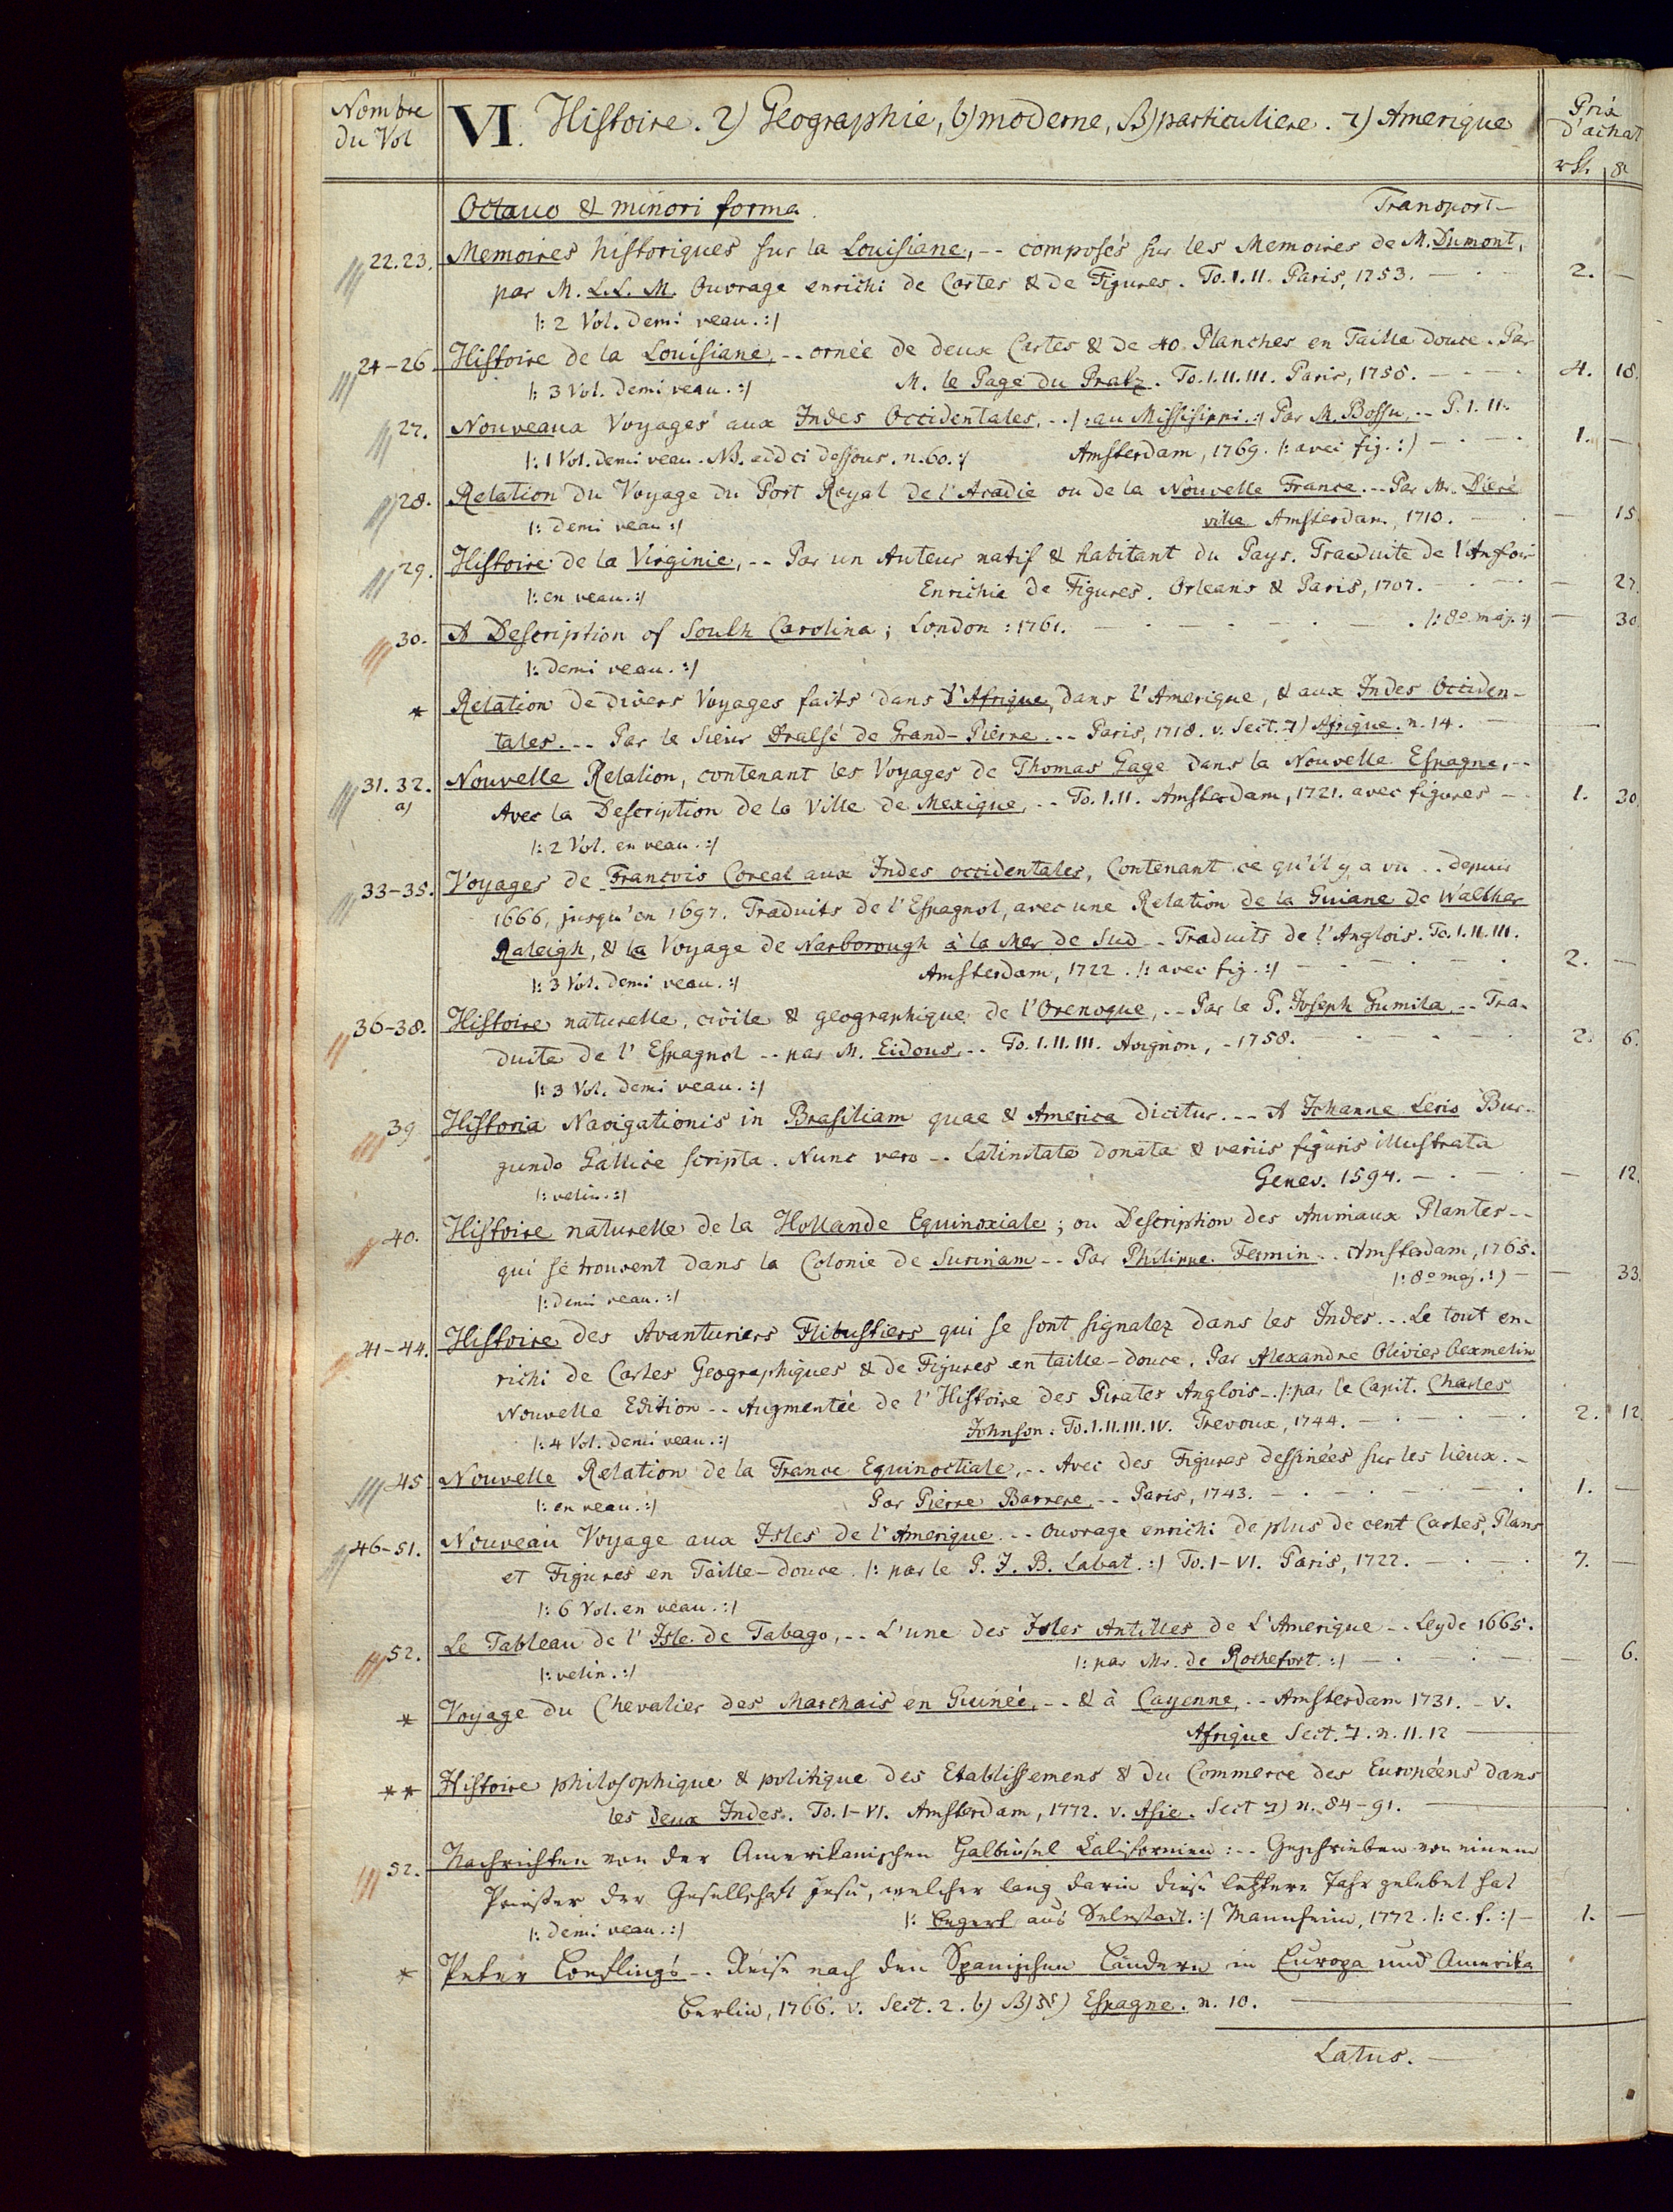 Nombre du Vol
VI. Histoire. 2) Geographie, b) moderne, B) particuliere. 7) Amerique
Prix d'achat
Octavo & minori forma. Transport -
22.23. Memoires historiques sur la Louisiane, -- composés sur les Memoires de M. Dumont,
par M. L.L. M. Ouvrage enrichi de Cartes & de Figures. To. I. II. Paris, 1753. 2. -
/: 2 Vol. demi veau. :/
24-26 Histoire de la Louisiane, -- ornée de deux Cartes & de 40 Planches en Taille douce. Par
/: 3 Vol. demi veau. :/ M. le Page du Pratz. To. I. II. III. Paris, 1758. 4. 18.
27. Nouveaux Voyages aux Indes Occidentales, -- /: au Missisippi. :/ Par M. Bossu, -- P. I. II.
/: 1 Vol. demi veau. NB. add ci dessous. n. 60. :/ Amsterdam, 1769. /: avec fig. :/ 1. -
28. Relation du Voyage du Port Royal de l'Acadie ou de la Nouvelle France. -- Par Mr. Dieré
/: demi veau :/ ville Amsterdam, 1710. - 15.
29. Histoire de la Virginie, -- Par un Auteur natif & habitant du Pays. Traduite de l'Anglois
/: en veau. :/ Enrichie de Figures. Orleans & Paris, 1707. - 27.
30. A Description of South Carolina; London: 1761. /: 8o maj. :/ - 30
/: demi veau. :/
* Relation de divers Voyages faits dans l'Afrique, dans l'Amerique, & aux Indes Occiden-
tales. -- Par le Sieur Dralsé de Grand-Pierre. -- Paris, 1718. v. Sect. 7) Afrique. n. 14. -
31. 32. a) Nouvelle Relation, contenant les Voyages de Thomas Gage dans la Nouvelle Espagne, --
Avec la Description de la Ville de Mexique, -- To. I. II. Amsterdam, 1721. avec figures - 1. 30.
/: 2 Vol. en veau. :/
33-35. Voyages de Francois Coreal aux Indes occidentales, Contenant ce qu'il y a vu .. depuis
1666, jusqu'en 1697. Traduits de l'Espagnol, avec une Relation de la Guiane de Walther
Raleigh, & la Voyage de Narborough à la Mer de Sud -- Traduits de l'Anglois. To. I. II. III.
/: 3 Vol. demi veau. :/ Amsterdam, 1722. /: avec fig. :/ 2. -
36-38. Histoire naturelle, civile & geographique de l'Orenoque, -- Par le P. Joseph Gumila, -- Tra-
duite de l'Espagnol -- par M. Eidous, -- To. I. II. III. Avignon, - 1758. 2. 6.
/: 3 Vol. demi veau. :/
39 Historia Navigationis in Brasiliam quae & America dicitur. -- A Johanne Lerio Bur-
gundo Gallice scripta. Nunc vero -- Latinitate donata & variis figuris illustrata
/: velin. :/ Genev. 1594. - 12.
40. Histoire naturelle de la Hollande Equinoxiale; ou Description des Animaux Plantes --
qui se trouvent dans la Colonie de Surinam -- Par Philippe Fermin -- Amsterdam, 1765.
/: demi veau. :/ /: 8o maj. :/ - 33.
41-44. Histoire des Avanturiers Flibustiers qui se sont signalez dans les Indes. -- Le tout en-
richi de Cartes Geographiques & de Figures en taille-douce. Par Alexandre Olivier Oexmelin
Nouvelle Edition -- Augmentée de l'Histoire des Pirates Anglois -- /: par le Capit. Charles
/: 4 Vol. demi veau. :/ Johnson. To. I. II. III. IV. Trevoux, 1744. 2. 12.
45 Nouvelle Relation de la France Equinoctiale, -- Avec des Figures dessinées sur les lieux. -
/: en veau. :/ Par Pierre Barrere, -- Paris, 1743. 1. -
46-51. Nouveau Voyage aux Isles de l'Amerique. -- Ouvrage enrichi de plus de cent Cartes, Plans
et Figures en Taille-douce. /: par le P. J. B. Labat. :/ To. I-VI. Paris, 1722. 7. -
/: 6 Vol. en veau. :/
52. Le Tableau de l'Isle de Tabago, -- L'une des Isles Antilles de L'Amerique -- Leyde 1665.
/: velin. :/ /: par Mr. de Rochefort. :/ - 6.
* Voyage du Chevalier des Marchais en Guinée, -- & à Cayenne, -- Amsterdam 1731. - v.
Afrique Sect. 7. n. 11. 12
** Histoire philosophique & politique des Etablissemens & du Commerce des Européens dans
les deux Indes. To. I-VI. Amsterdam, 1772. v. Asie. Sect 7) n. 84-91.
52. Nachrichten von der Amerikanischen Halbinsel Californien: -- Geschrieben von einem
Priester der Gesellschaft Jesu, welcher lang darin diese letztere Jahr gelebet hat
/: demi veau. :/ /: Begert aus Selestadt. :/ Mannheim, 1772. /: c. f. :/ - 1. -
* Peter Loeflings -- Reise nach den Spanischen Ländern in Europa und Amerika
Berlin, 1766. v. Sect. 2. b) B) Espagne. n. 10.
Latus. -